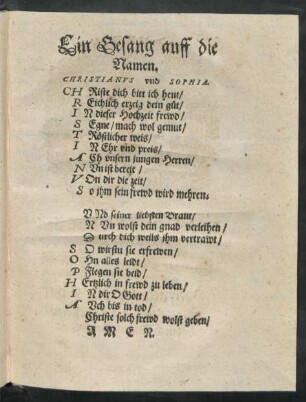 Ein Gesang auff die
Namen.
CHRISTIANVS vnd SOPHIA.
CH Riste dich bitt ich heut/
R Eichlich erzeig dein güt/
I N dieser Hochzeit frewd/
S Egne/ mach wol gemut/
T Röstlicher weis/
I N Ehr vnd preis/
A Ch vnsern jungen Herren/
N Vn ist bereit/
V On dir die zeit/
S o ihm sein frewd wird mehren.
VNd seiner liebsten Braut/
N Vn wolst dein gnad verleihen/
D urch dich weils ihm vertrawt/
S O wirstu sie erfrewen/
O Hn alles leidt/
P Flegen sie beid/
H Ertzlich in frewd zu leben/
I N dir O Gott/
A Vch bis in tod/
Christe solch frewd wolst geben/
A M E N.